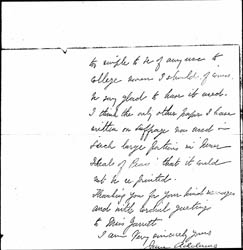 to simple to be of any use to
college women I should, of course,
be very glad to have it used.
I think the only other paper I have
written on suffrage was used in
such large portions in "Newer
Ideals of Peace" that it could
not be re printed.
Thanking you for your kind messages
and with cordial greetings
to Miss Garrett
I am Very sincerely yours
Jane Addams